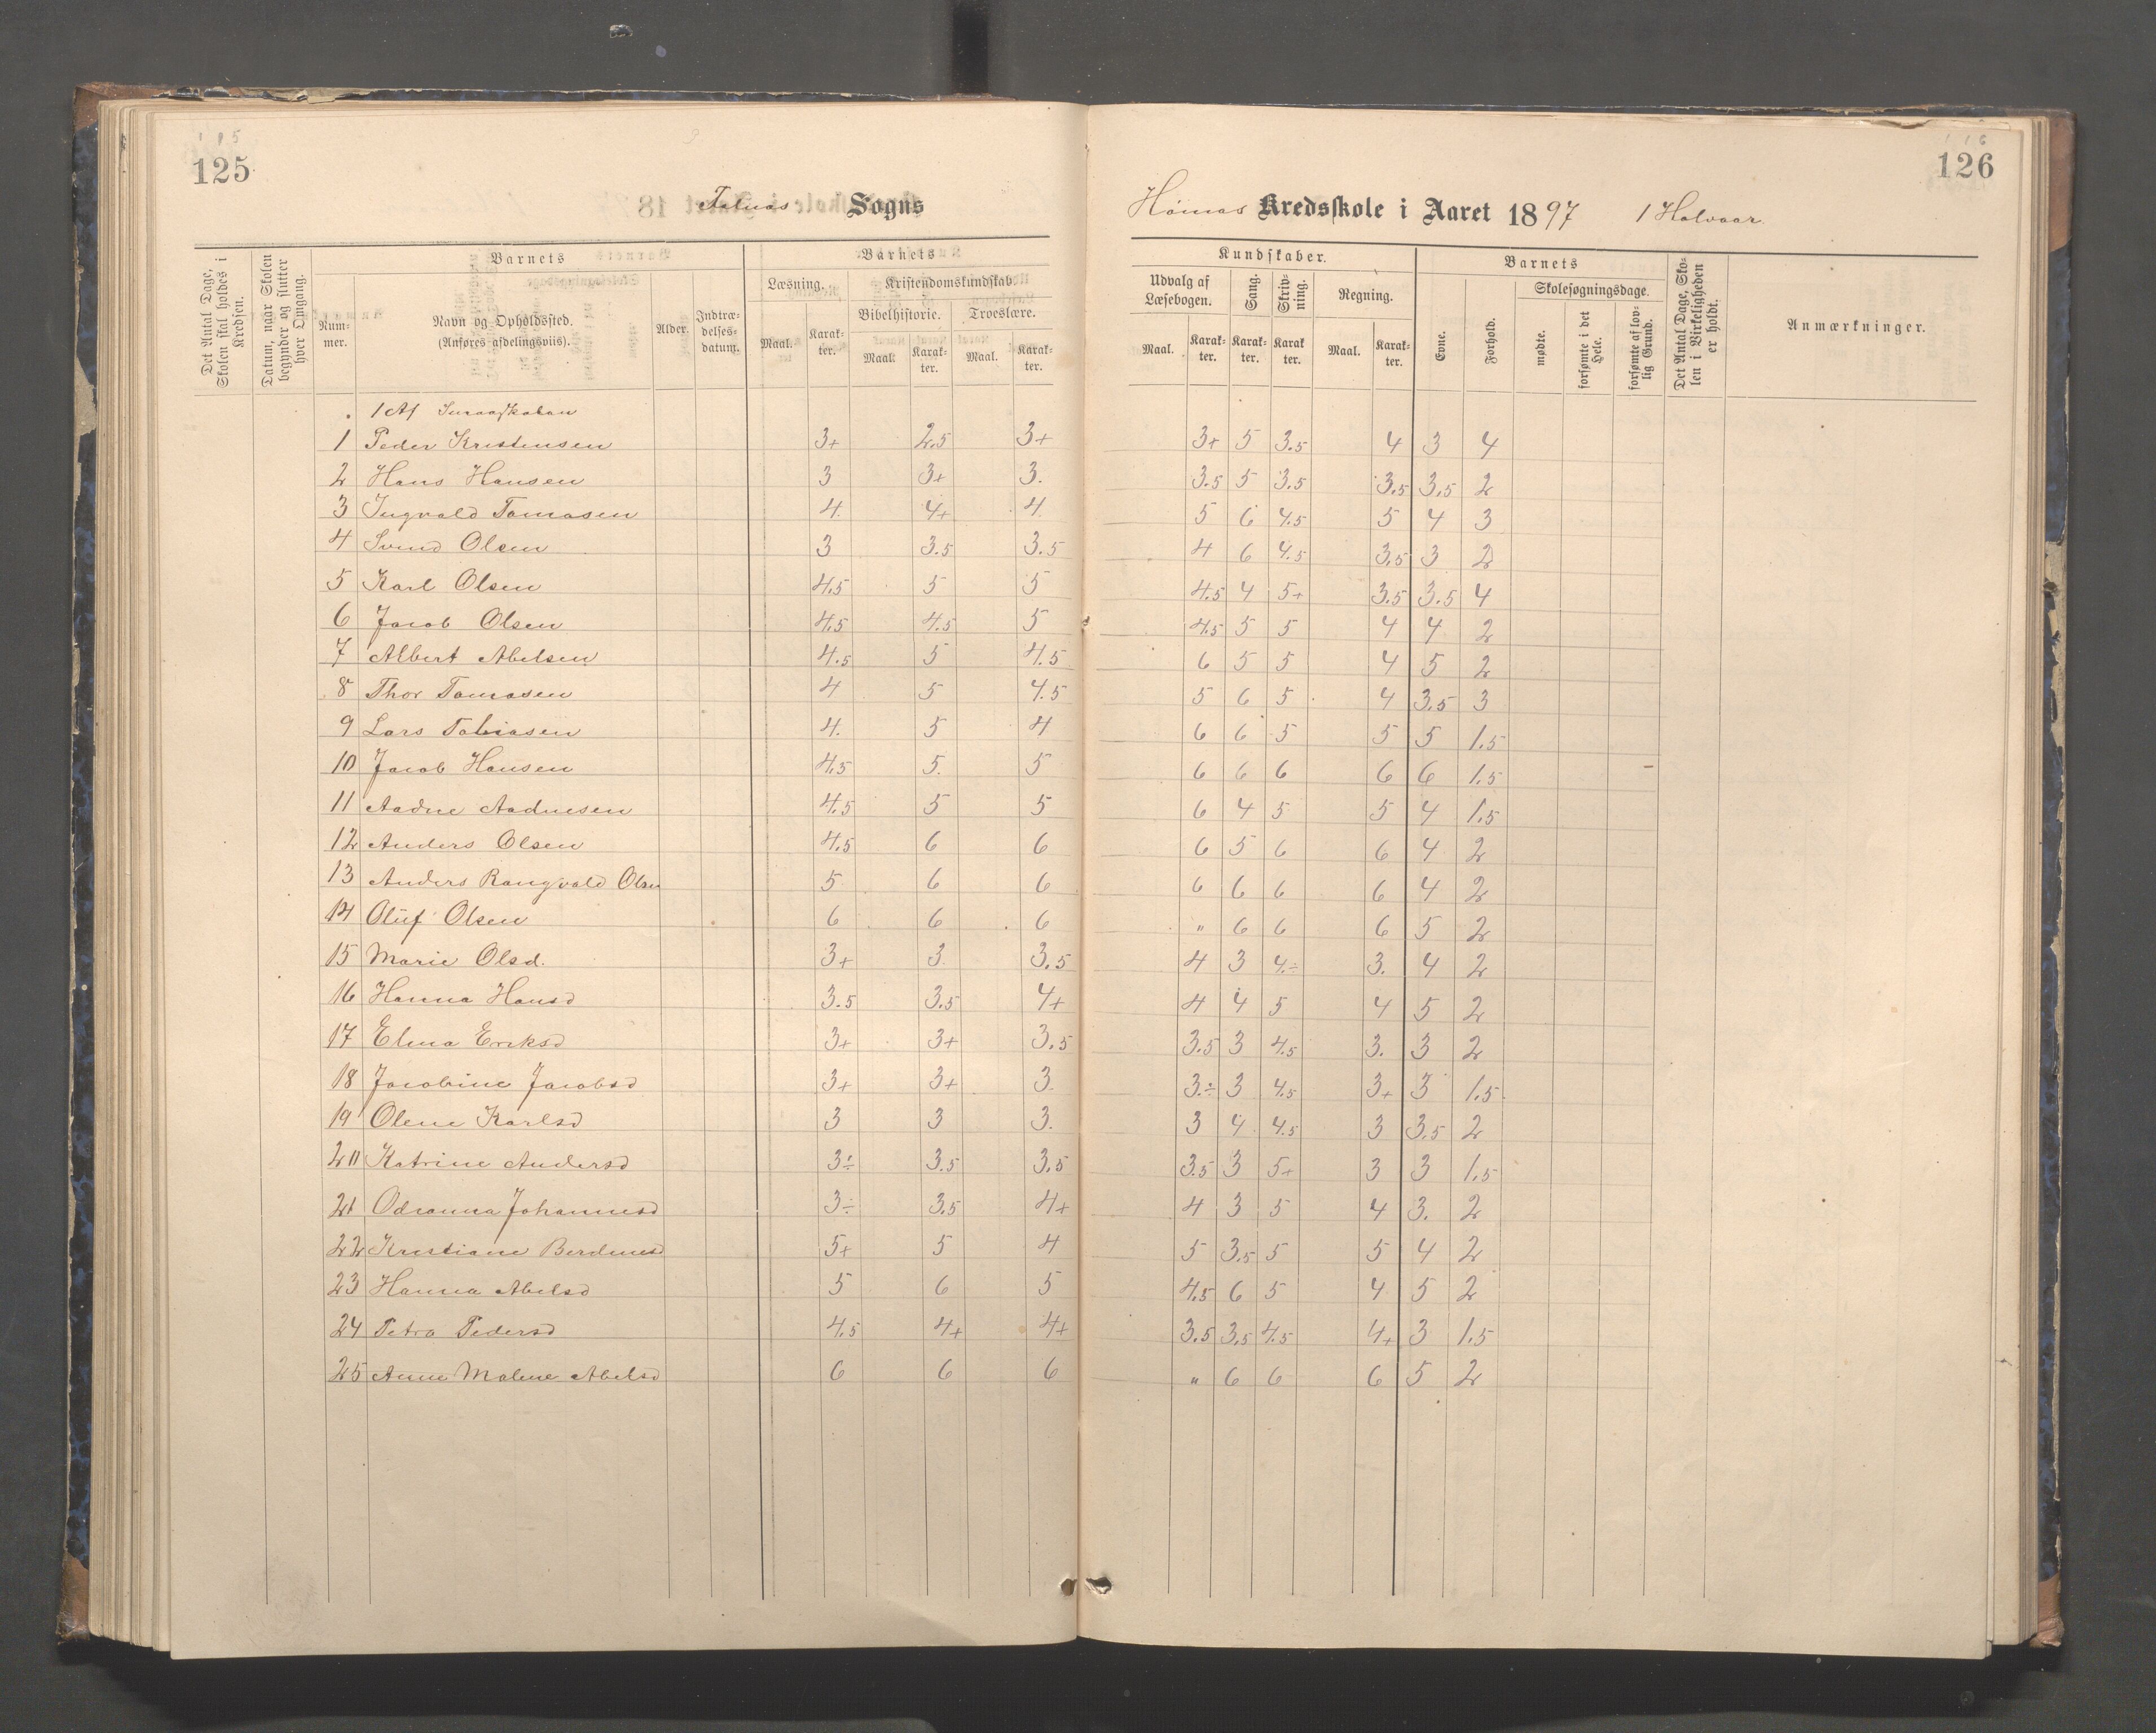 125
Sogns
Det Antal Dage, Skolen skal holdes i Kredsen.
Datum, naar Skolen begynder og slutter hver Omgang.
Barnets
Num-mer.
Navn og Opholdssted.
(Anføres afdelingsviis).
Alder.
Indtræ-delses-datum.
Barnets
Læsning.
Maal.
Karak-ter.
Kristendomskundskab
Bibelhistorie.
Maal.
Karak-ter.
Troeslære.
Maal.
Karak-ter.
126
Kredsskole i Aaret 1897 1 Halvaar.
Kundskaber.
Udvalg af Læsebogen.
Maal.
Karak-ter.
Sang.
Karak-ter.
Skriv-ning.
Karak ter.
Regning.
Maal.
Karak-ter.
Barnets
Evne.
Forhold.
Skolesøgningsdage.
mødte.
forsømte i det Hele.
forsømte af lov-lig Grund.
Det Antal Dage, Sko-len i Virkeligheden er holdt.
Anmærkninger.
1 Af Smaaskolen
1 Peder Kristensen 3+ 2.5 3+ 3+ 5 3.5 4 3 4
2 Hans Hansen 3 3+ 3. 3.5 5 3.5 3.5 3.5 2
3 Ingvald Tomasen 4. 4+ 4 5 6 4.5 5 4 3
4 Svend Olsen 3 3.5 3.5 4 6 4.5 3.5 3 2
5 Karl Olsen 4.5 5 5 4.5 4 5+ 3.5 3.5 4
6 Jacob Olsen 4.5 4.5 5 4.5 5 5 4 4 2
7 Albert Abelsen 4.5 5 4.5 6 5 5 4 5 2
8 Thor Tomasen 4 5 4.5 5 6 5 4 3.5 3
9 Lars Tobiasen 4. 5 4 6 6 5 5 5 1.5
10 Jacob Hansen 4.5 5. 5 6 6 6 6 6 1.5
11 Aadne Aadnesen 4.5 5 5 6 4 5 5 4 1.5
12 Anders Olsen 4.5 6 6 6 5 6 6 4 2
13 Anders Rangvald Olsen 5 6 6 6 6 6 6 4 2
14 Oluf Olsen 6 6 6 " 6 6 6 5 2
15 Marie Olsd. 3+ 3 3.5 4 3 4.÷ 3. 4 2
16 Hanna Hansd 3.5 3.5 4+ 4 4 5 4 5 2
17 Elena Eriksd 3+ 3+ 3.5 3.5 3 4.5 3. 3 2
18 Jacobine Jacobsd 3+ 3+ 3. 3.÷ 3 4.5 3+ 3 1.5
19 Olene Karlsd 3 3 3. 3 4 4.5 3 3.5 2
20 Katrine Andersd 3÷ 3.5 3.5 3.5 3 5+ 3 3 1.5
21 Johannesd 3÷ 3.5 4+ 4 3 5 4 3. 2
22 Kristiane 5+ 5 4 5 3.5 5 5 4 2
23 Hanna Abelsd 5 6 5 4.5 6 5 4 5 2
24 Petra Pedersd 4.5 4+ 4+ 3.5 3.5 4.5 4+ 3 1.5
25 Anne Malene Abelsd 6 6 6 " 6 6 6 5 2